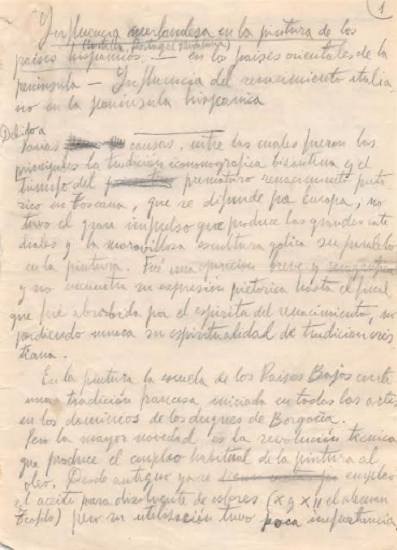 1
Influencia neerlandesa en la pintura de los
(Castilla, Portugal
países hispánicos. I — en los países orientales de la
península — Influencia del renacimiento italia
no en la península hispánica
Debido a
varias causas, entre las cuales fueron las
principales la tradición iconografica bizantina y el
triunfo del prematuro renacimiento pictó
rico en Toscana, que se difunde por Europa, no
tuvo el gran impulso que produce las grandes cate
drales y la maravillosa escultura gotica su paralelo
en la pintura. Fué una aparicion breve y
y no encuentra su expresión pictorica hasta el final
que fué absorbida por el espiritu del renacimiento, no
perdiendo nunca su espiritualidad de tradicion cris
tiana.
En la pintura la escuela de los Países Bajos contí
una tradición francesa iniciada en todas las artes
en los dominios de los duques de Borgoña.
Pero la mayor novedad es la revolución tecnica
que produce el empleo habitual de la pintura al
oleo. Desde antiguo ya se empleo
el aceite para disolvente de colores (x y XII el aleman
Teofilo) pero su utilización tuvo poca importancia,